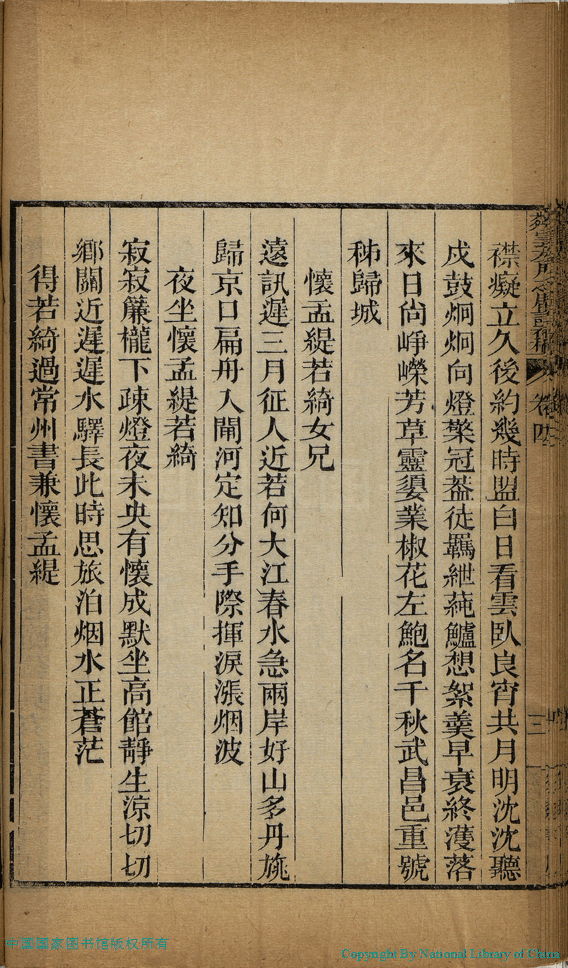 襟癡立久後約幾時盟白日看雲臥良宵共月明沈沈聽
戍鼓炯炯向燈檠冠葢徒羈紲蒓鱸想絮羹早衰終濩落
來日尙崢嶸芳草靈媭業椒花左鮑名千秋武昌邑重號
秭歸城
懷孟緹若綺女兄
遠訊遲三月征人近若何大江春水急兩岸好山多丹旐
歸京口扁舟入閘河定知分手際揮淚漲烟波
夜坐懷孟緹若綺
寂寂簾櫳下疎燈夜未央有懷成默坐高館靜生涼切切
鄉關近遲遲水驛長此時思旅泊烟水正蒼茫
得若綺過常州書兼懷孟緹
卷四
三
中国国家图书馆版权所有
Copyright By National Library of China